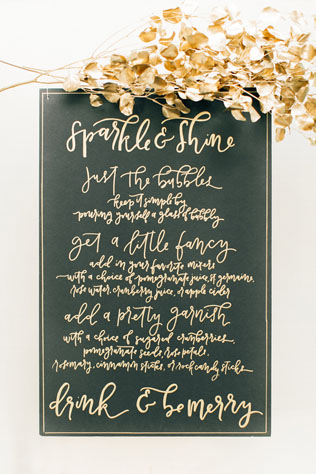 sparkle & shine
just the bubbles
keep it simple by
pouring yourself a glass of bubbly
get a little fancy
add in your favorite mixers
with a choice of pomegranate juice, st germaine,
rose water, cranberry juice, or apple cider
add a pretty garnish
with a choice of sugared cranberries,
pomegranate seeds, rose petals,
rosemary, cinnamon sticks, or rock candy sticks
drink & be merry